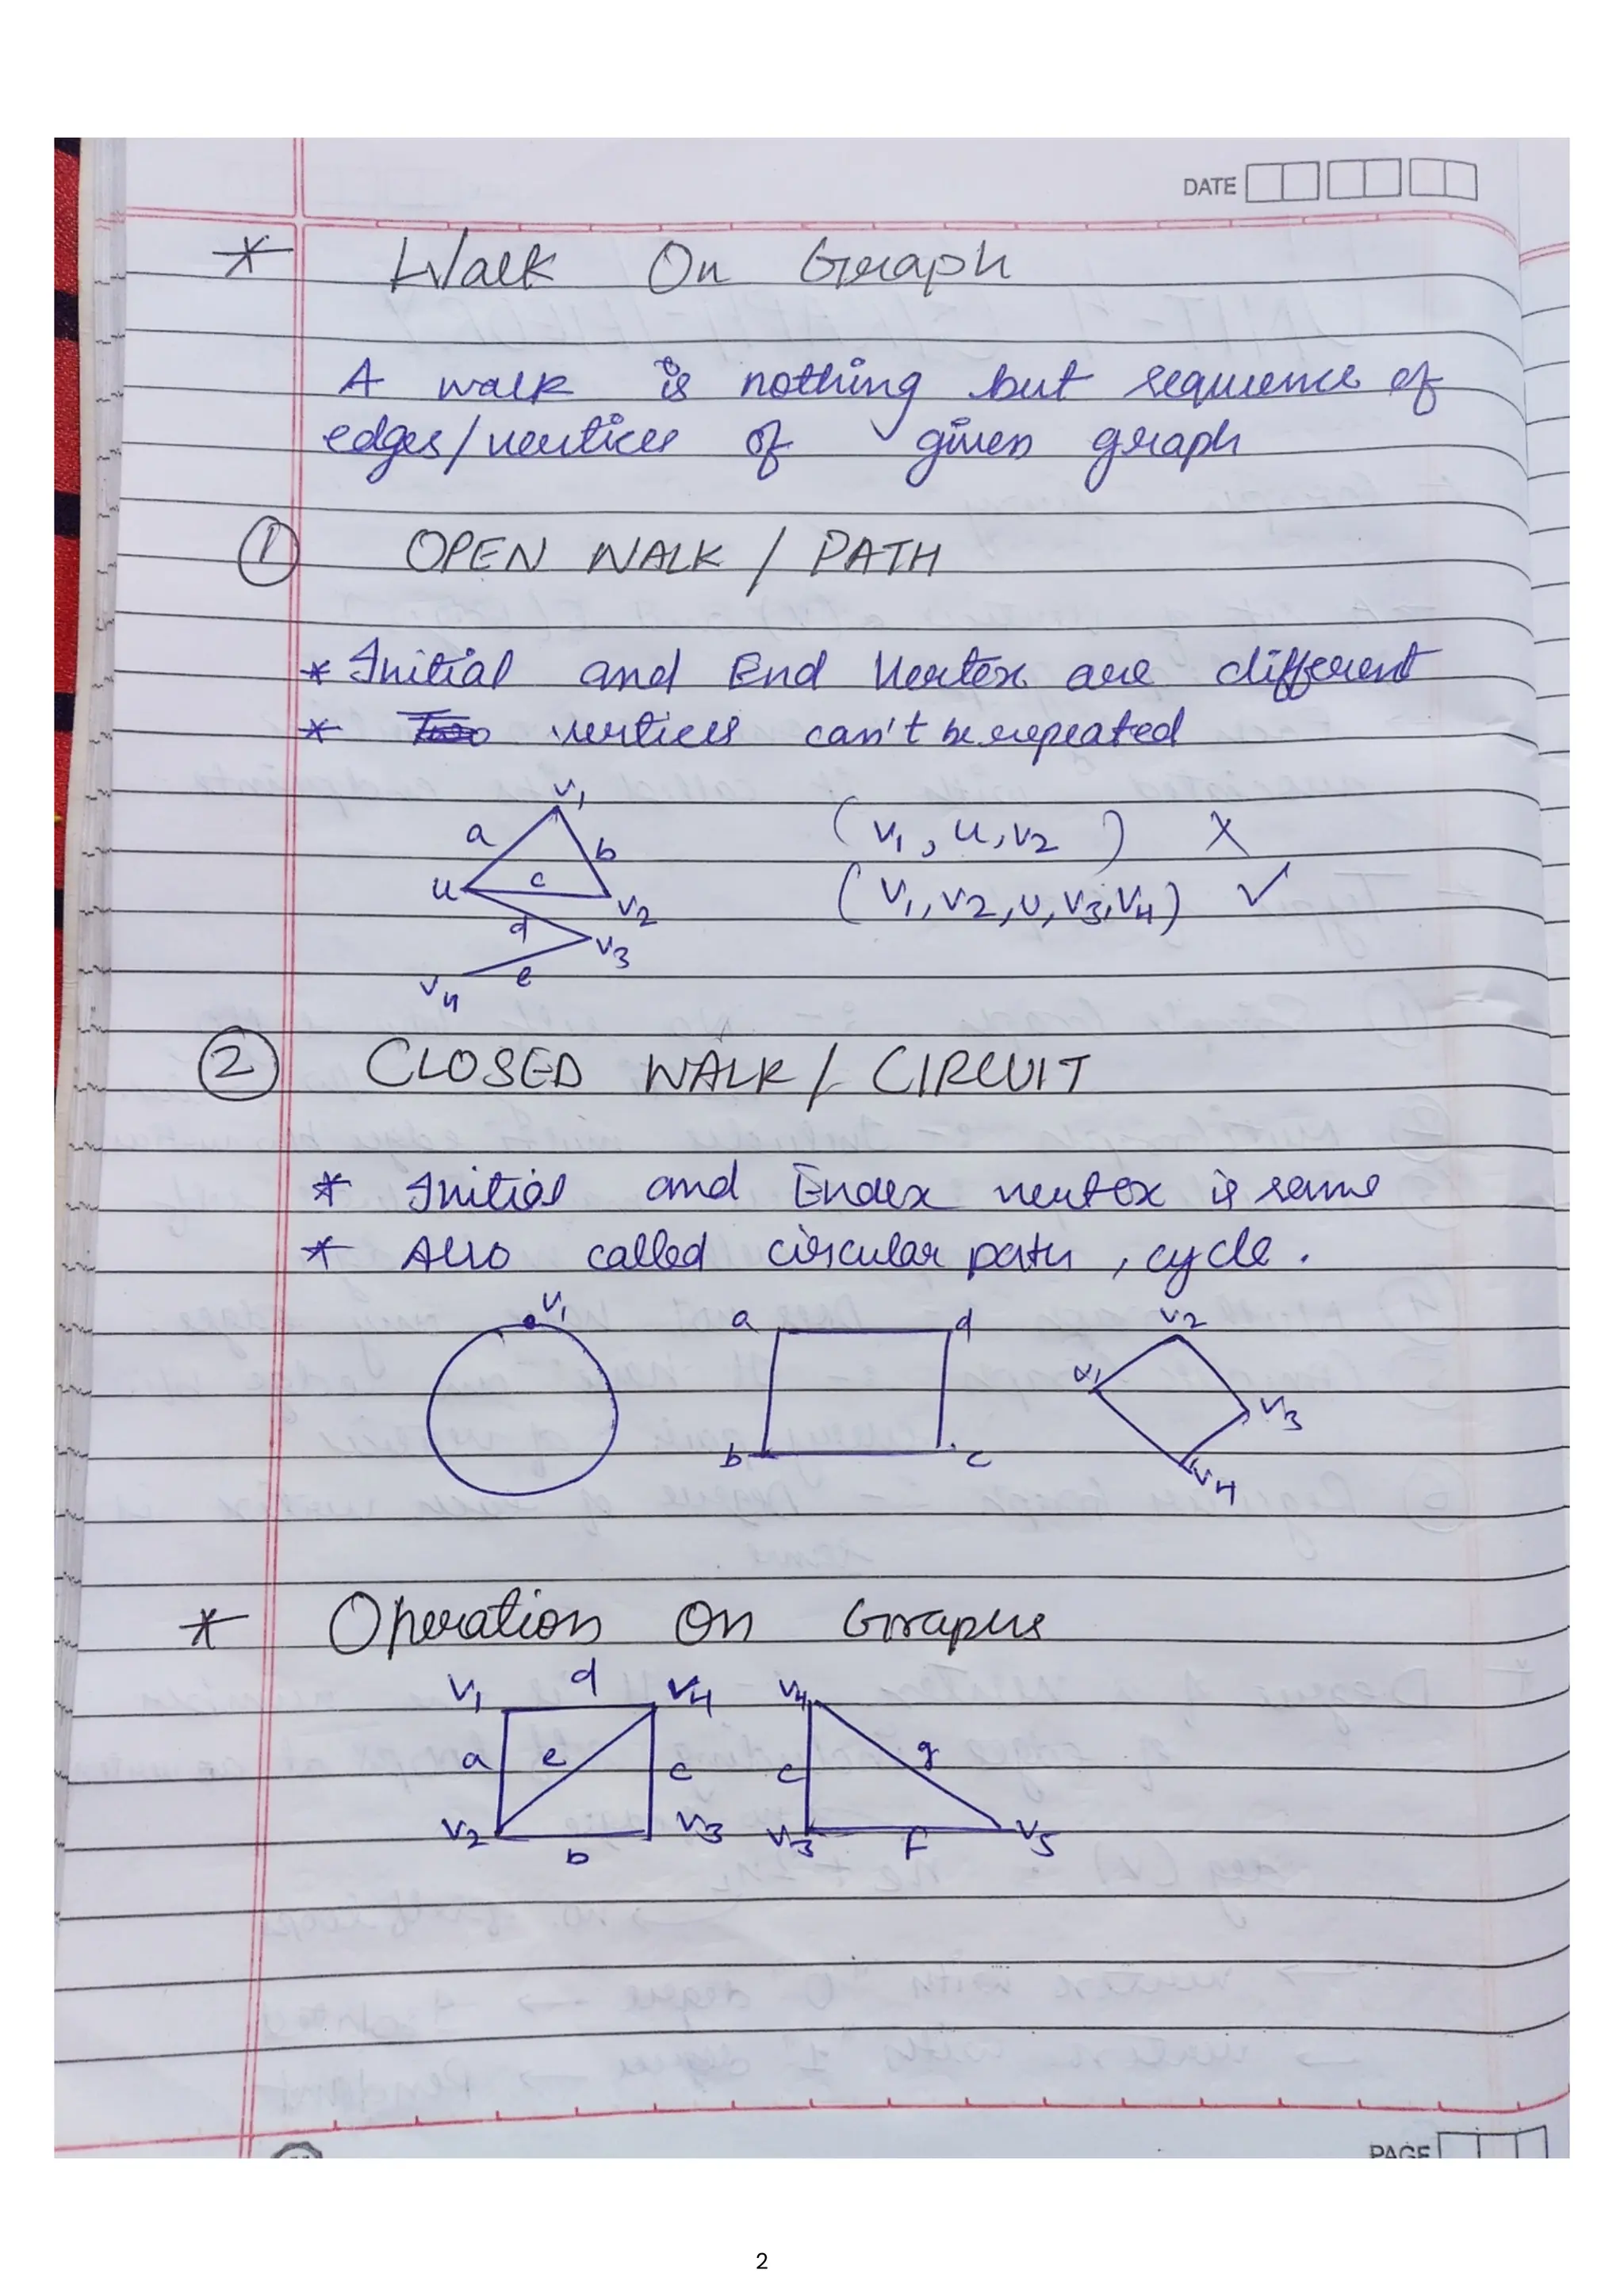 DATE
* Walk On Graph
A walk is nothing but sequence of
edges/vertices of given graph
① OPEN WALK / PATH
* Initial and End Vertex are different
* vertices can't be repeated
v1
a
b
(v1, u, v2) X
u
c
v2
(v1, v2, u, v3, v4) ✓
d
v3
e
v4
② CLOSED WALK / CIRCUIT
* Initial and Endex vertex is same
* Also called circular path, cycle.
v1
a d
b c
v2
v1
v3
v4
* Operation On Graphs
v1 d v4 v4
a e c c g
v2 b v3 v3 f v5
PAGE
2